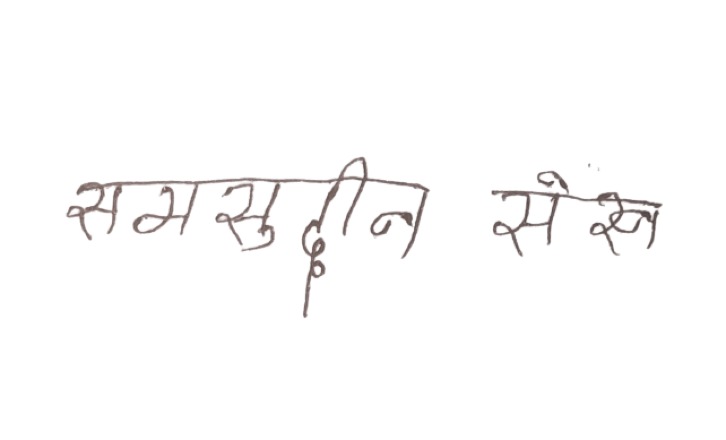 समसुद्दीन सेख